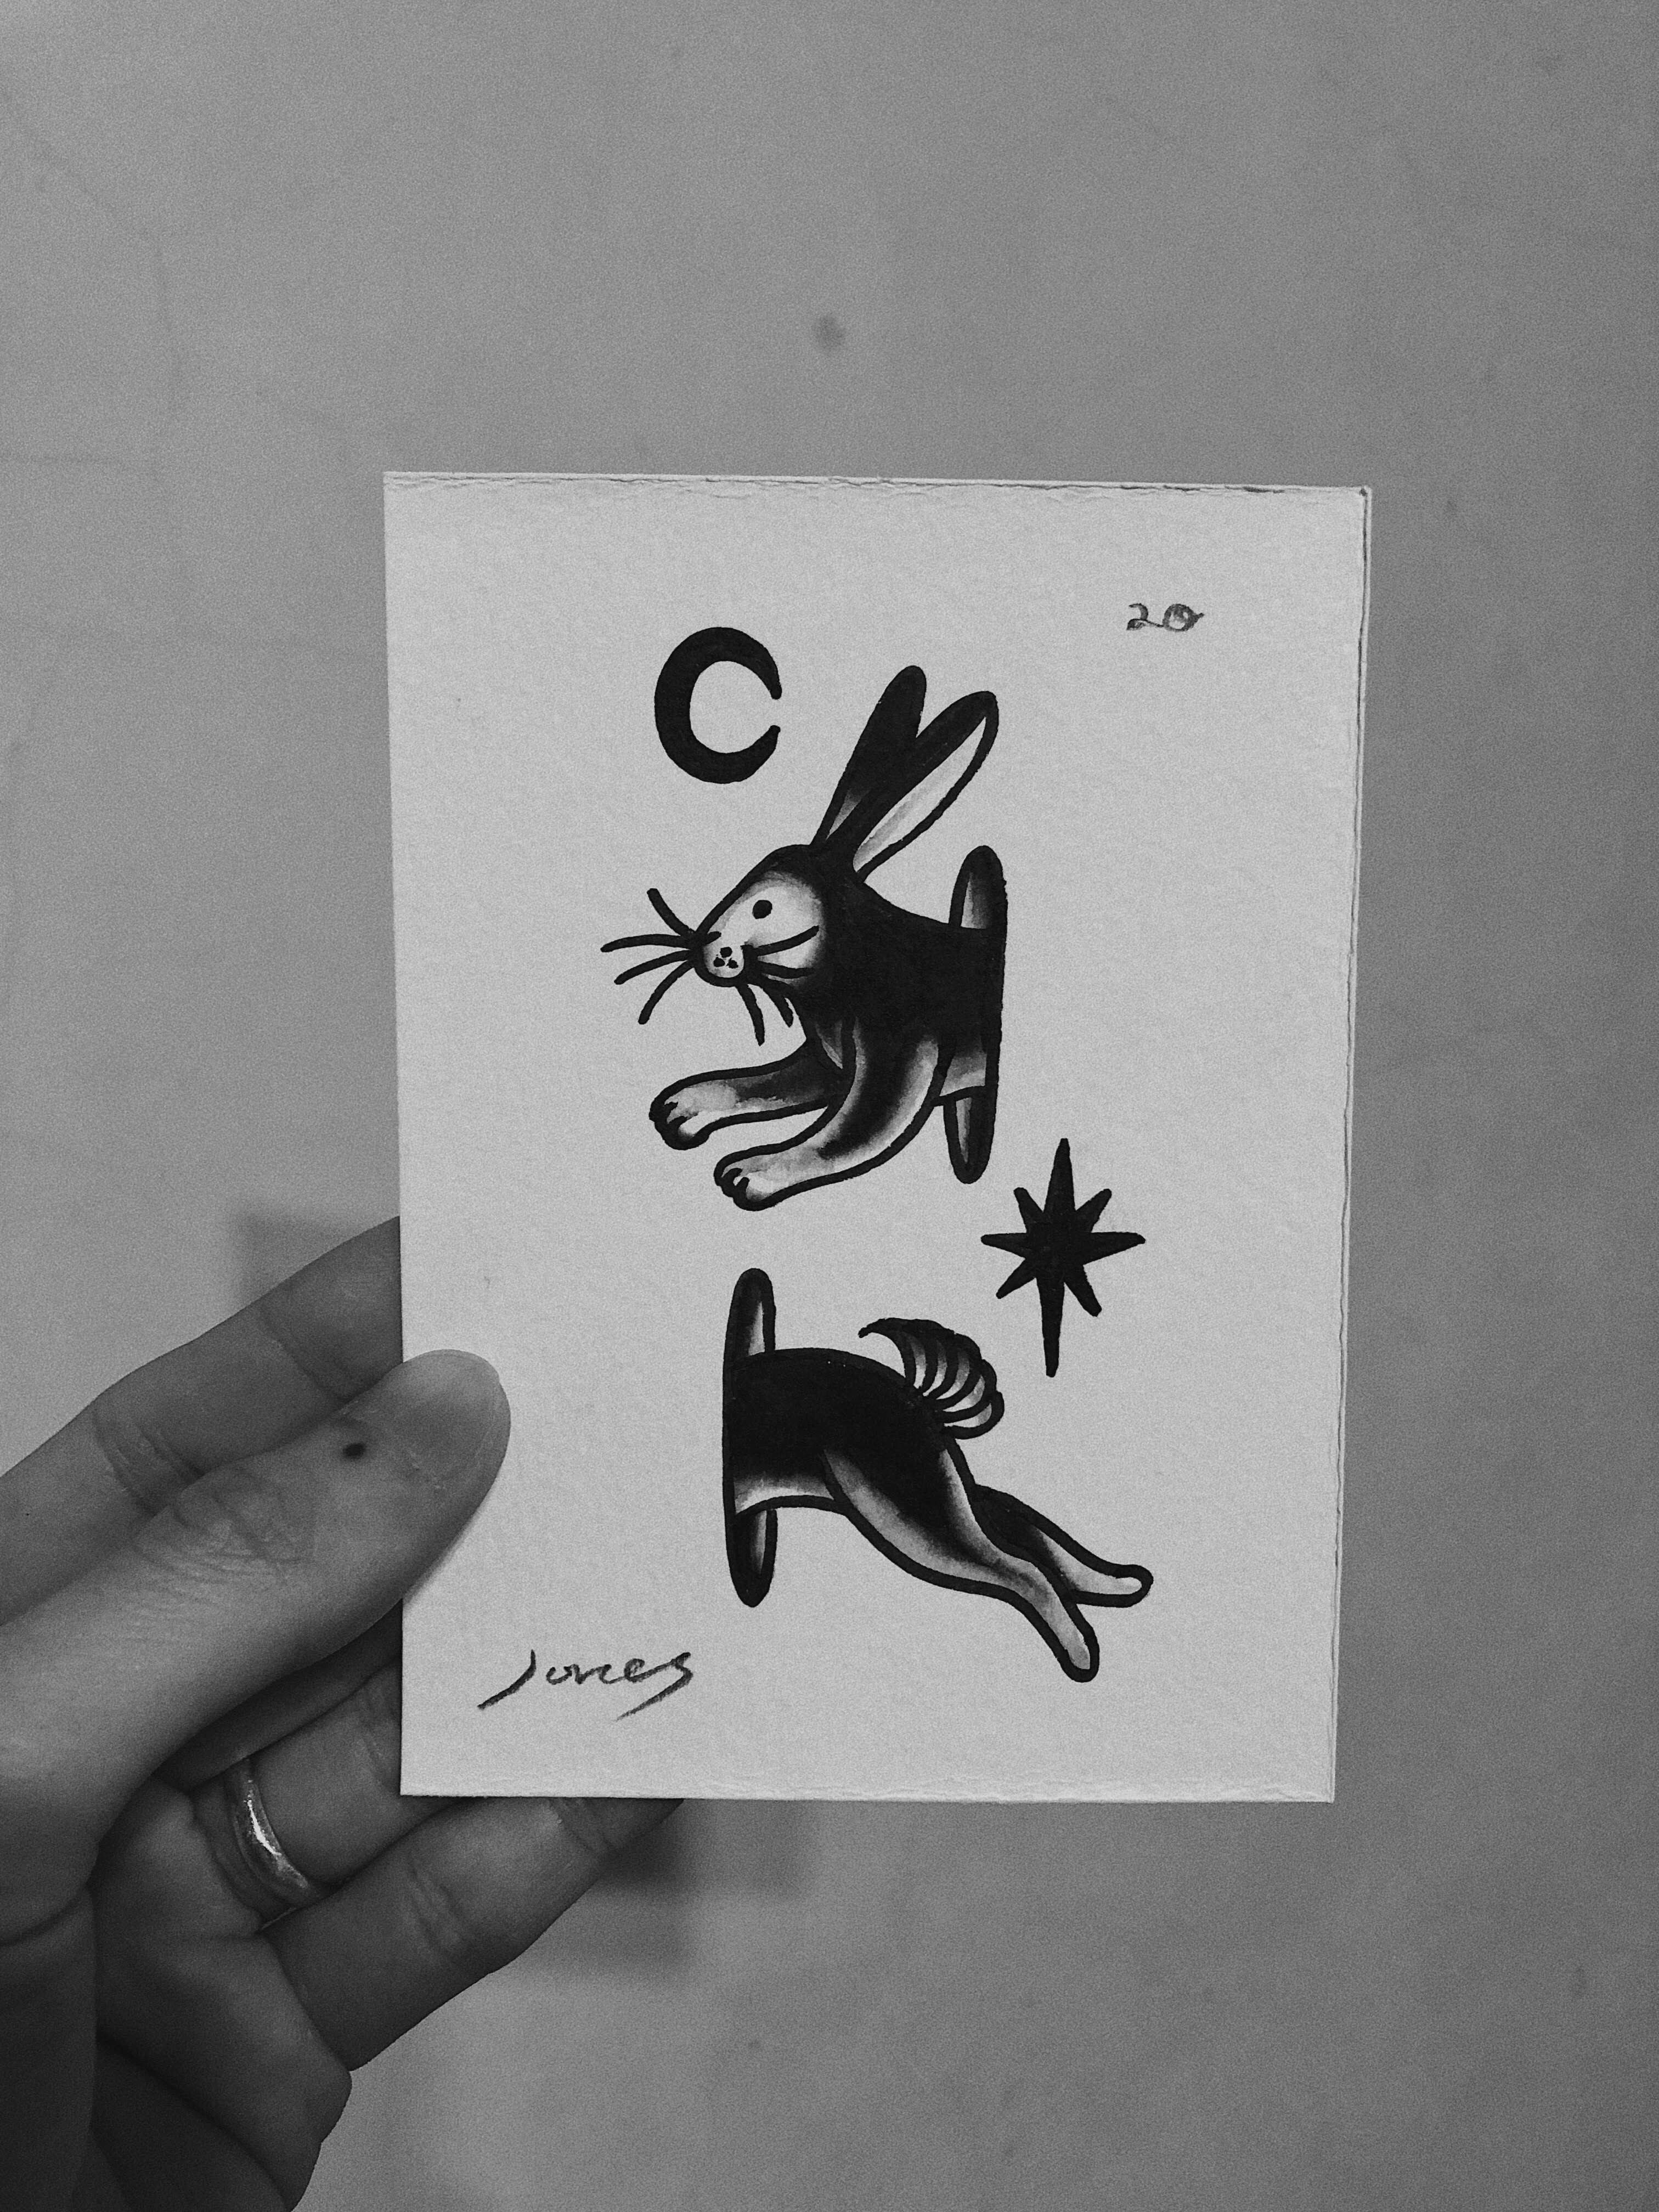 20
Jones